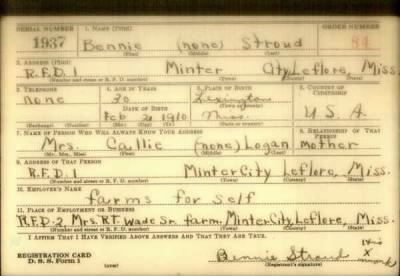 SERIAL NUMBER 1. NAME (Print) ORDER NUMBER
1937 Bennie (none) Stroud 84
(First) (Middle) (Last)
2. ADDRESS (Print)
R.F.D. 1 Minter City, Leflore, Miss.
(Number and street or R. F. D. number) (Town) (County) (State)
3. TELEPHONE 4. AGE IN YEARS 5. PLACE OF BIRTH 6. COUNTRY OF CITIZENSHIP
none 30 Lexington
DATE OF BIRTH (Town or county)
Feb 2 1910 Miss. U.S.A.
(Exchange) (Number) (Mo.) (Day) (Yr.) (State or country)
7. NAME OF PERSON WHO WILL ALWAYS KNOW YOUR ADDRESS 8. RELATIONSHIP OF THAT PERSON
Mrs. Callie (none) Logan Mother
(Mr., Mrs., Miss) (First) (Middle) (Last)
9. ADDRESS OF THAT PERSON
R.F.D. 1 Minter City Leflore, Miss.
(Number and street or R. F. D. number) (Town) (County) (State)
10. EMPLOYER'S NAME
farms for self
11. PLACE OF EMPLOYMENT OR BUSINESS
R.F.D-2 Mrs. R.T. Wade Sr. farm, Minter City, Leflore, Miss.
(Number and street or R. F. D. number) (Town) (County) (State)
I AFFIRM THAT I HAVE VERIFIED ABOVE ANSWERS AND THAT THEY ARE TRUE.
REGISTRATION CARD his
D. S. S. Form 1 Bennie X Stroud
(over) (Registrant's signature) mark